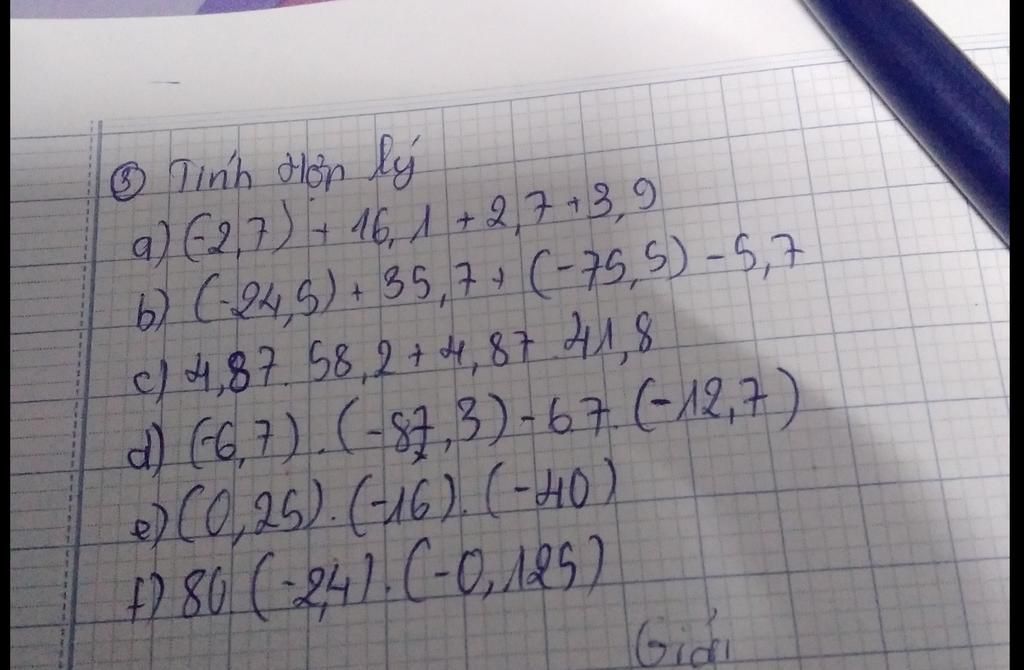 ③ Tính Hợp lý
a) (-2,7) + 16,1 + 2,7 + 3,9
b) (-24,5) + 35,7 + (-75,5) - 5,7
c) 4,87. 58,2 + 4,87. 41,8
d) (-6,7). (-87,3) - 67. (-12,7)
e) (0,25). (-16). (-40)
f) 80 (-2,4). (-0,125)
Giải